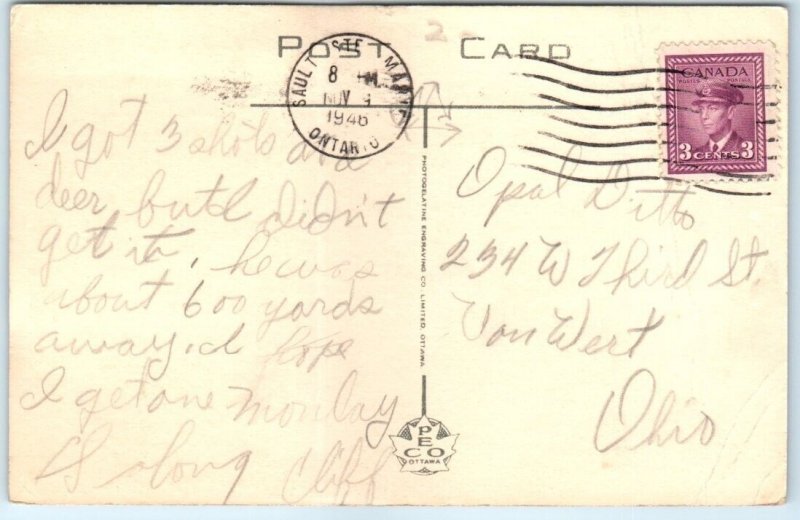 POST CARD
SAULT STE. MARIE
8 PM
NOV 9
1946
ONTARIO
CANADA
POSTES POSTAGE
3 CENTS 3
I got 3 shots at a
deer but I didn't
get it, he was
about 600 yards
away. I hope
I get one monday
So long Cliff
PHOTOGELATINE ENGRAVING CO. LIMITED, OTTAWA
PECO
OTTAWA
Opal Ditto
234 W Third St.
Van Wert
Ohio